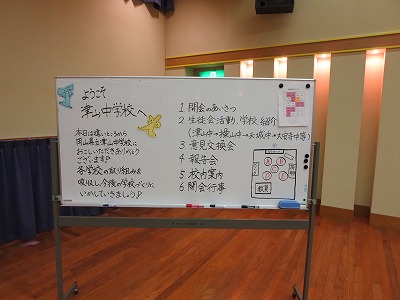 ようこそ
津山中学校へ
本日は遠いところから
岡山県立津山中学校に
おこしいただきありがとう
ございます!
各学校の取り組みを
吸収し、今後の学校づくりに
いかしていきましょう!
1 開会のあいさつ
2 生徒会活動、学校紹介
(津山中→操山中→天城中→大安寺中等)
3 意見交換会
4 報告会
5 校内案内
6 閉会行事
教員